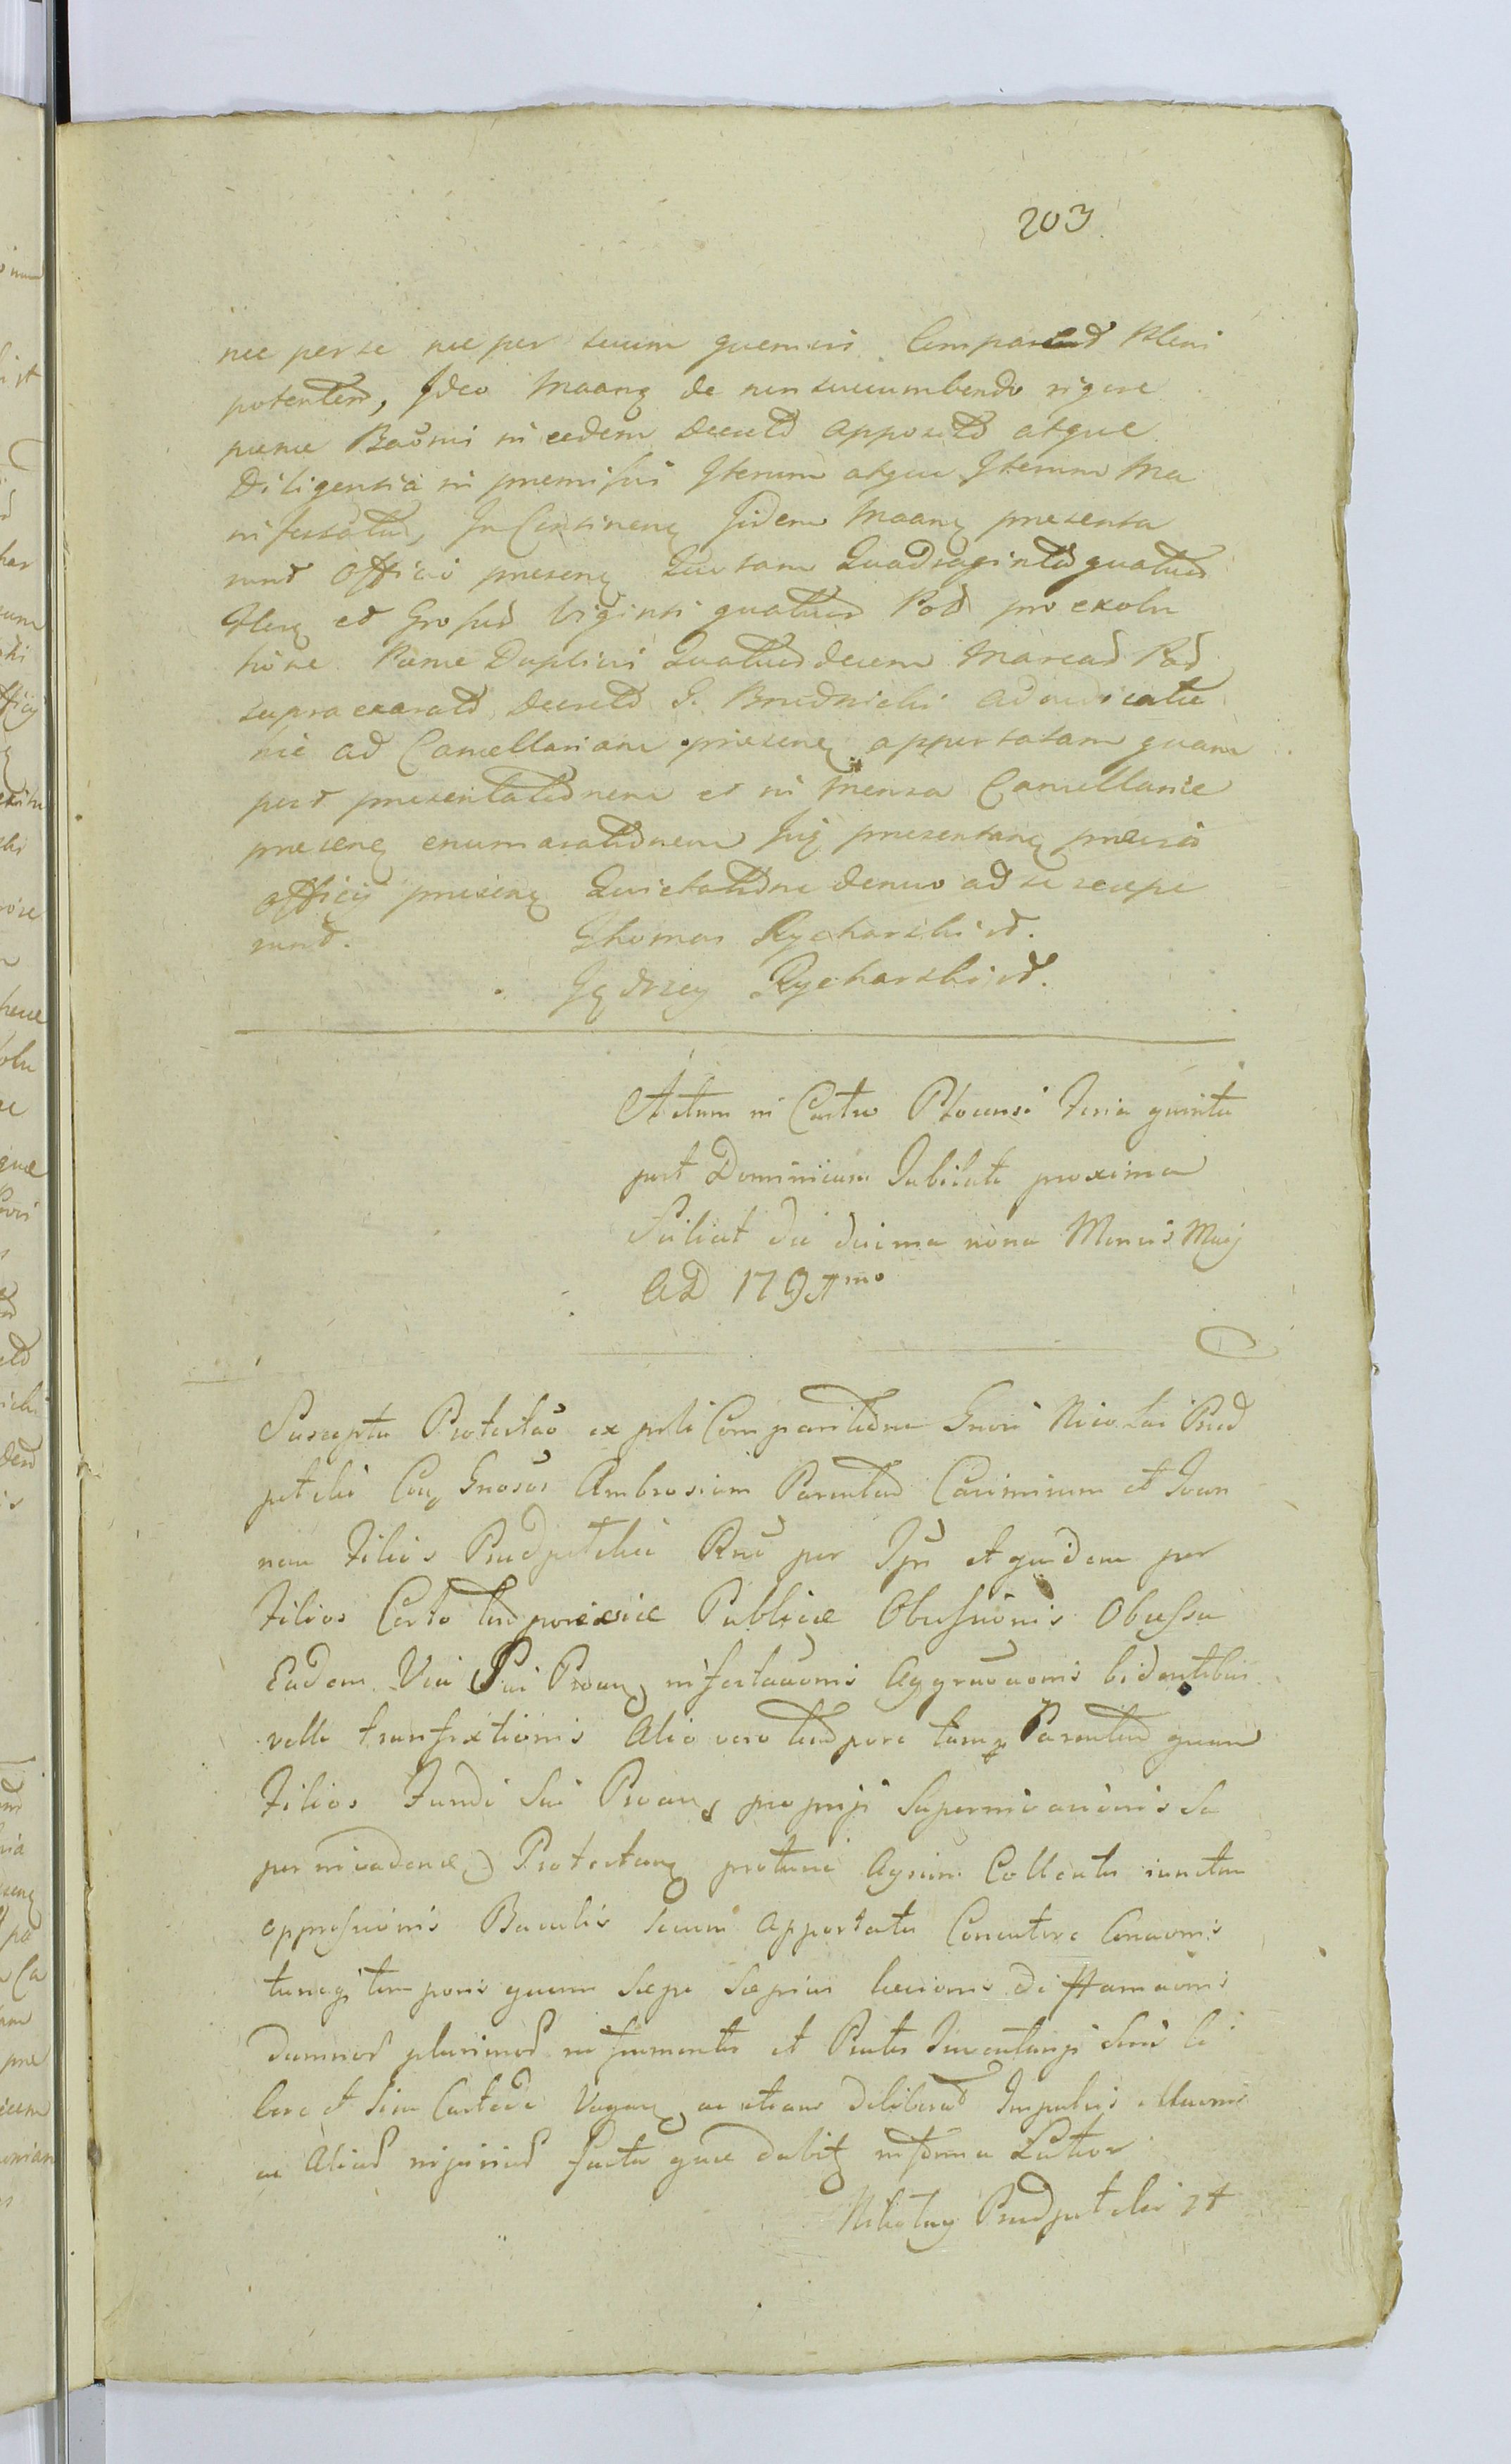 203.
nec per se nec per suum quemvis Comparend Pleni
potentem, Ideo Maane de non succumbendo rigore
pœnæ Baõnis in eodem Decreto apposito atque
Diligentia in præmissis Iterum atque Iterum Ma
nifestatur, In Continen Iidem Maane præsenta
runt Officio præsen Quotam Quadraginta quatuor
Flen et Grossos Viginti quatuor Pol pro exolu
tione Pœnæ Duplicis Quatuordecem Marcas Pol
supra exarato Decreto G. Brudnicki adiudicatæ
nic ad Cancellariam præsen apportatam quam
post præsentationem et in mensa Cancellariæ
præsen enumerationem præsentan prævia
officij præsen Quietatione denuo ad se recepe
runt. Thomas Rycharski mt.
Jędrzey Rycharski mt.
Actum in Castro Plocensi Feria quinta
post Dominicam Jubilate proxima
Scilicet die decima nona Mensis Maij
AD 1791mo
Suscepta Protestaõ ex psli Comparitione Gnosi Nicolai Prud
potcki Con Gnosos Ambrosium Parentem Casimirum et Joan
nem Filios Prudpotckie Rnẽ per Ipsi et quidem per
Filios Certo tempore viæ Publicæ Obsessionis Obsessa
Eadem Via Sui Protan infestationis Aggravationis bidentibus
velle transfixionis Alio vero tempore tam Parentem quam
Filios Fundi Sui Protan proprij Supernivationis Su
per nivaden Protestan protune Agrum Collectis iunctim
oppressionis Baculis secum Apportatis Concutere Conaõnis
tunc temporis quam Sæpe Sæpius læsionis Diffamaonis
Damnor plurimor in frumentis et Pratis Inventarij Sui li
bere et sine Custode Vagan ac etiam deliberat Impulsis illaõnis
ac Alias injurias facta quæ dabit in forma Latior
Mikołay Prudpotcki mt